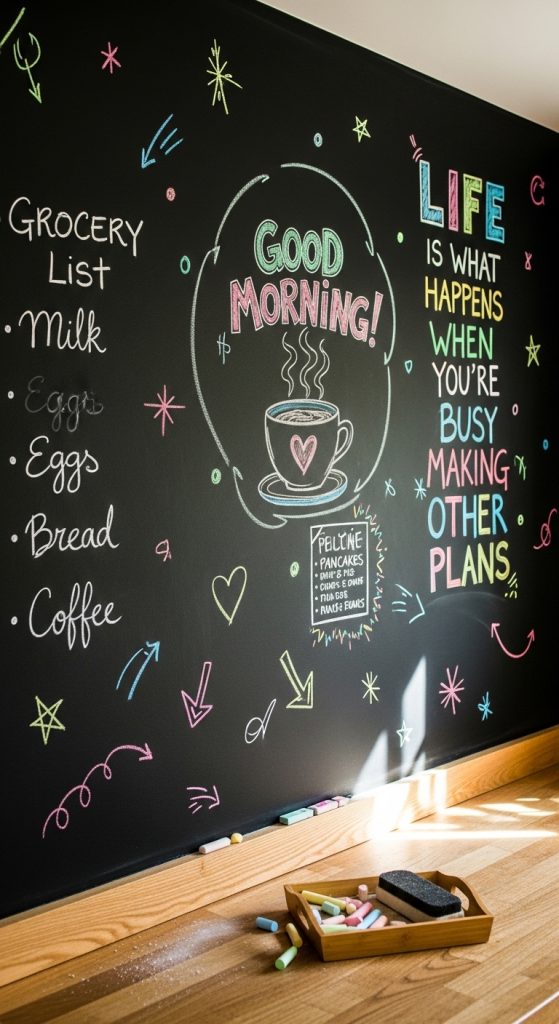 GROCERY
LIST
• Milk
• Eggs
• Eggs
• Bread
• Coffee
GOOD
MORNING!
• PANCAKES
LIFE
IS WHAT
HAPPENS
WHEN
YOU'RE
BUSY
MAKING
OTHER
PLANS